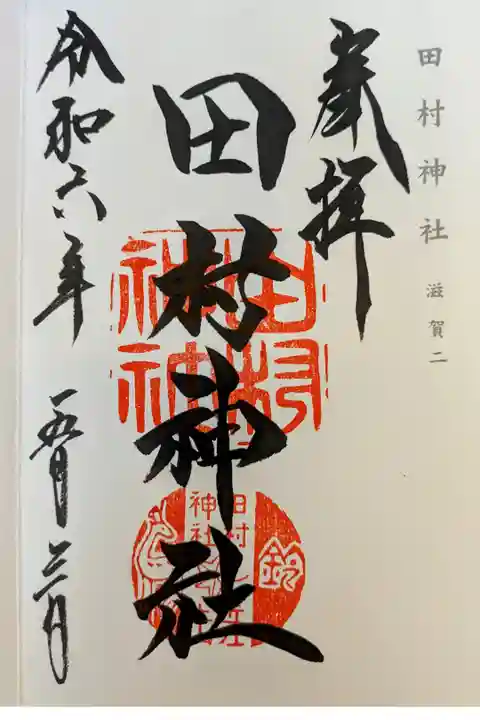 田村神社 滋賀二
奉拝
田村神社
令和六年 五月三日
田村
神社
鈴